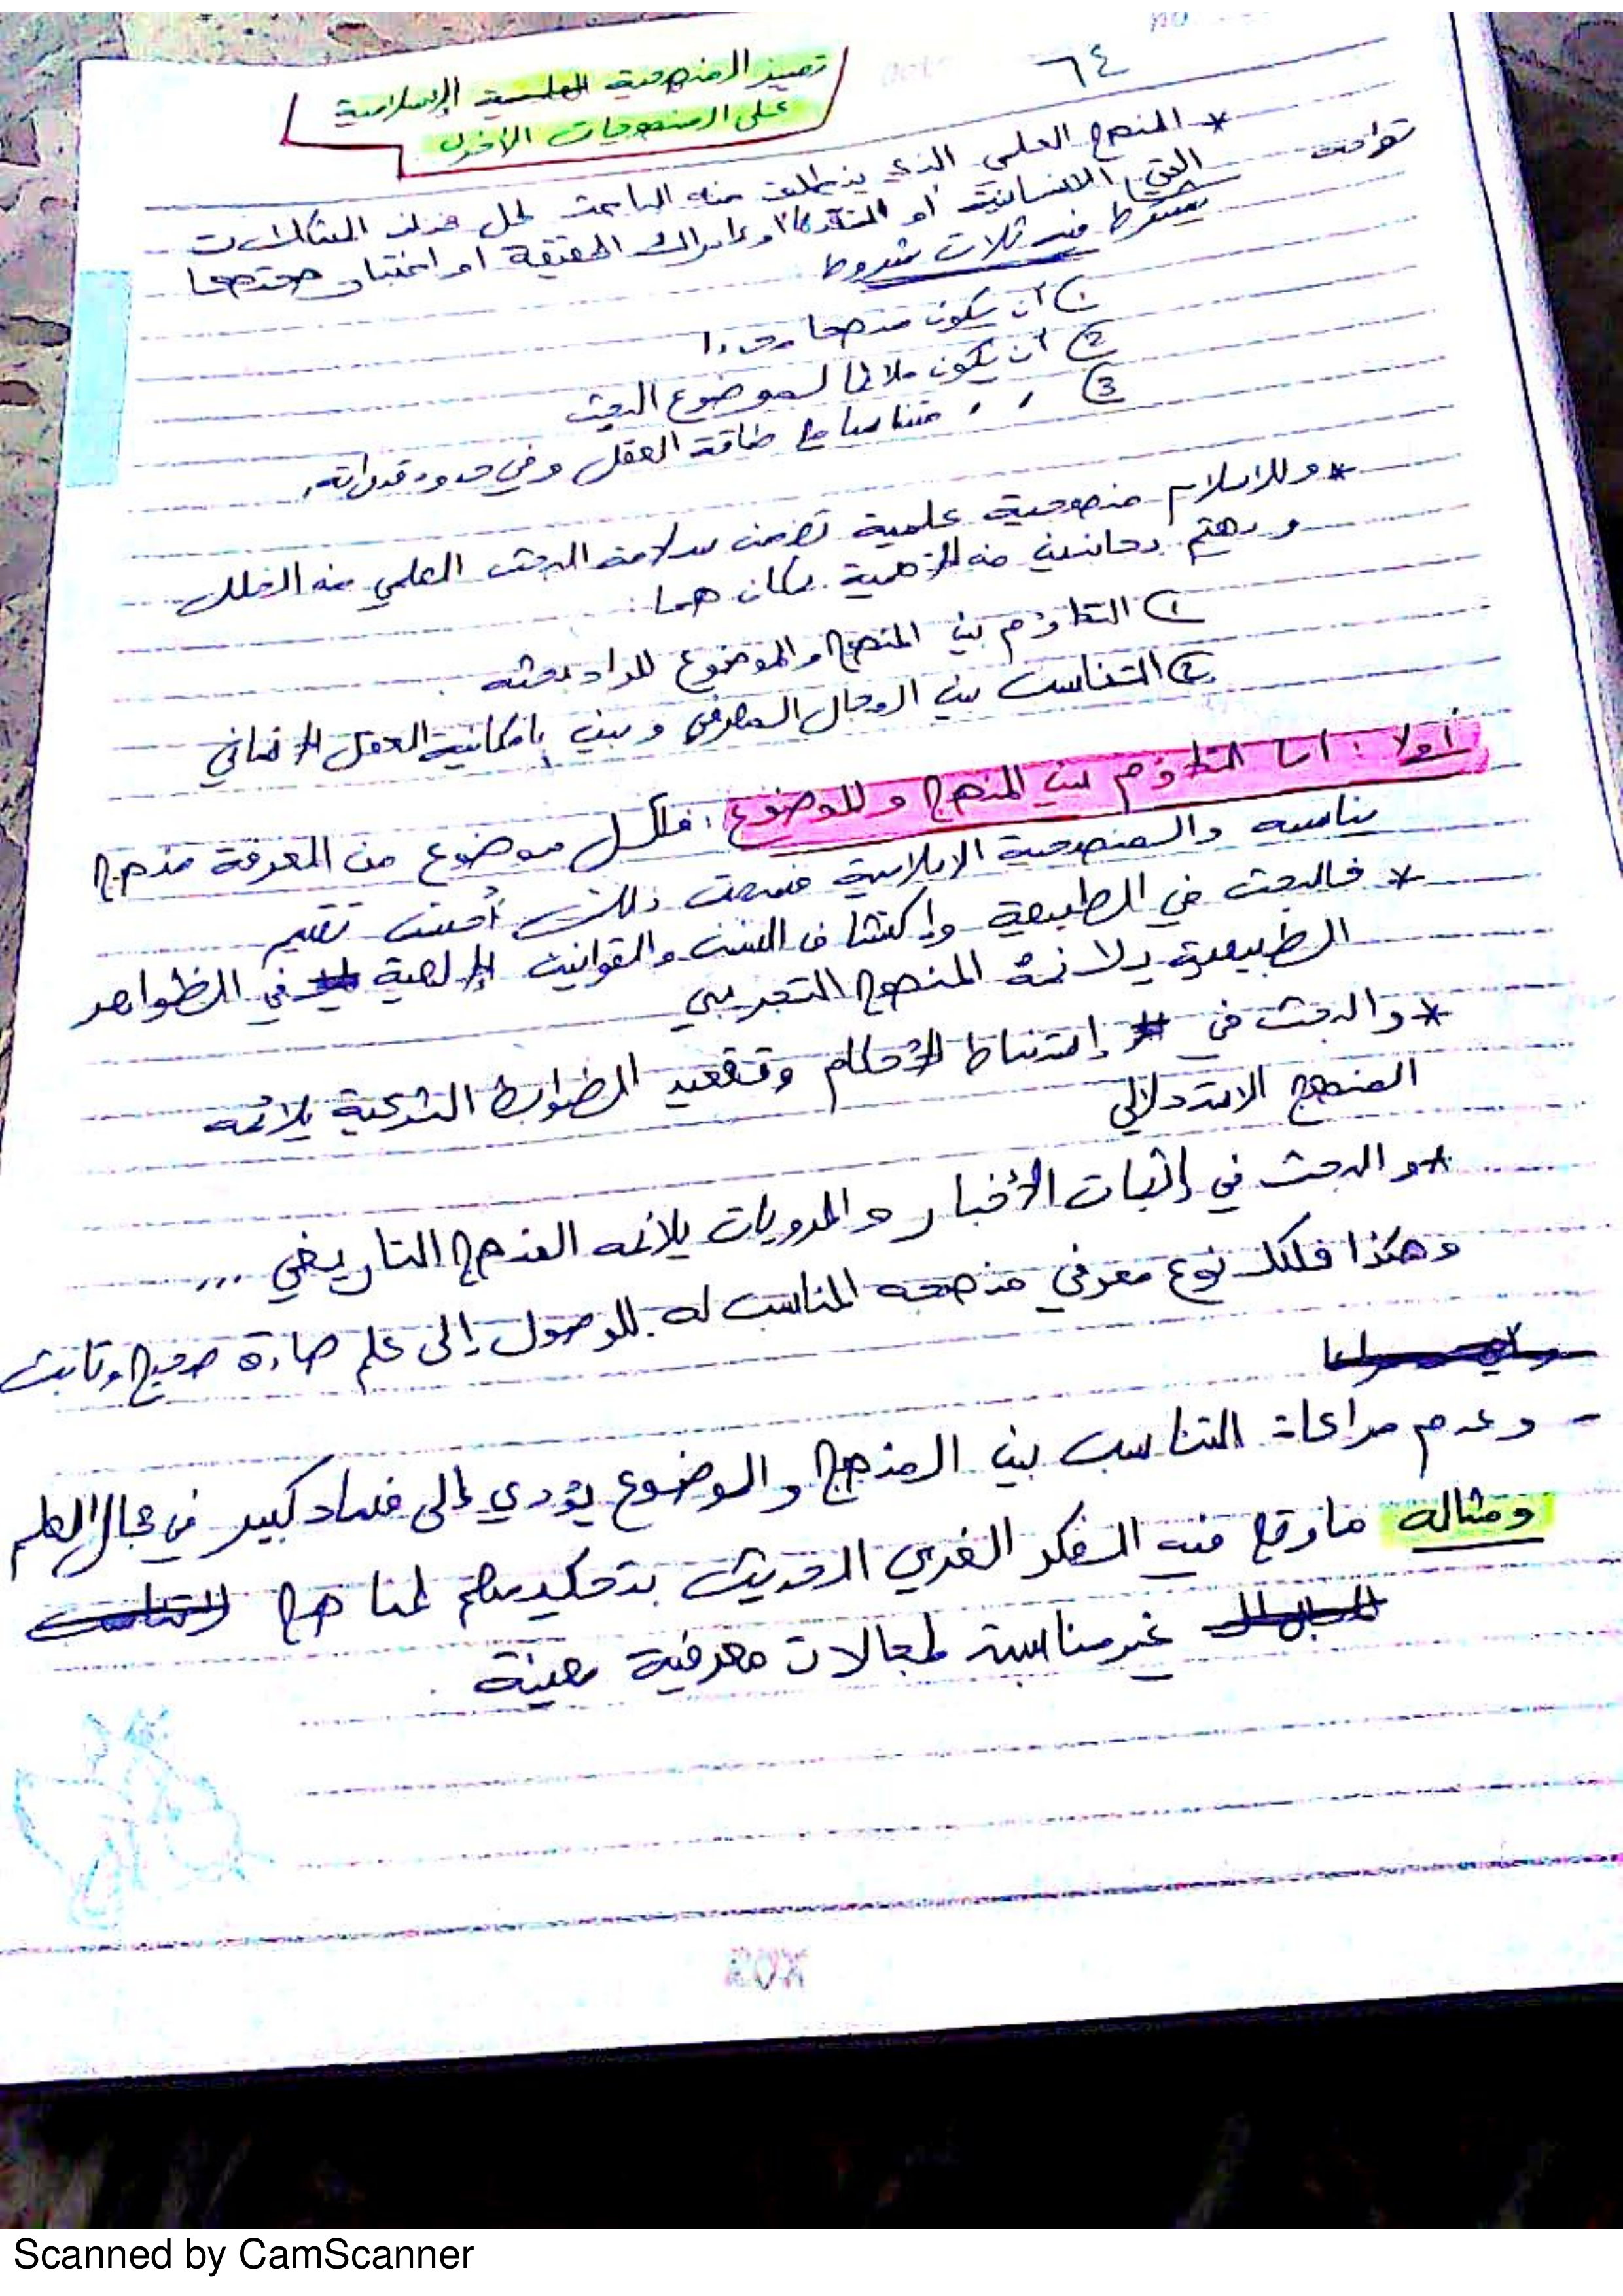 ٦٤
تميز المنهجية العلمية الإسلامية
على المنهجيات الأخرى
* المنهج العلمي الذي ينطلق منه الباحث لحل هذه المشكلات
التي الانسانية أو التقدم أو إدراك الحقيقة او اختبار صحتها
يشترط فيه ثلاث شروط
1 أن يكون منهجا
2 أن يكون ملائما لموضوع البحث
3 ، ، متناسبا مع طاقة العقل وفي حدود قدراته،
* وللإسلام منهجية علمية تضمن سلامة البحث العلمي من الخلل
ويهتم بجانبين من الأهمية بمكان هما:
1 التلاؤم بين المنهج والموضوع المراد بحثه.
2 التناسب بين المجال المعرفي وبين إمكانية العقل الإنساني
أولا: أما التلاؤم بين المنهج والموضوع: فلكل موضوع من المعرفة منهج
يناسبه والمنهجية الاسلامية قسمت ذلك أحسن تقسيم
* فالبحث في الطبيعة وإكتشاف السنن والقوانين الإلهية في الظواهر
الطبيعية يلائمه المنهج التجريبي
* والبحث في إستنباط الأحكام وتقعيد الضوابط الشرعية يلائمه
المنهج الاستدلالي
* والبحث في إثبات الأخبار والمرويات يلائمه المنهج التاريخي ...
وهكذا فلكل نوع معرفي منهجه المناسب له للوصول إلى علم صادق صحيح وثابت
- وعدم مراعاة التناسب بين المنهج والموضوع يؤدي إلى فساد كبير في مجال العلم
ومثاله ما وقع فيه الفكر الغربي الحديث بتحكيمهم لمناهج
غير مناسبة لمجالات معرفية معينة.
Scanned by CamScanner